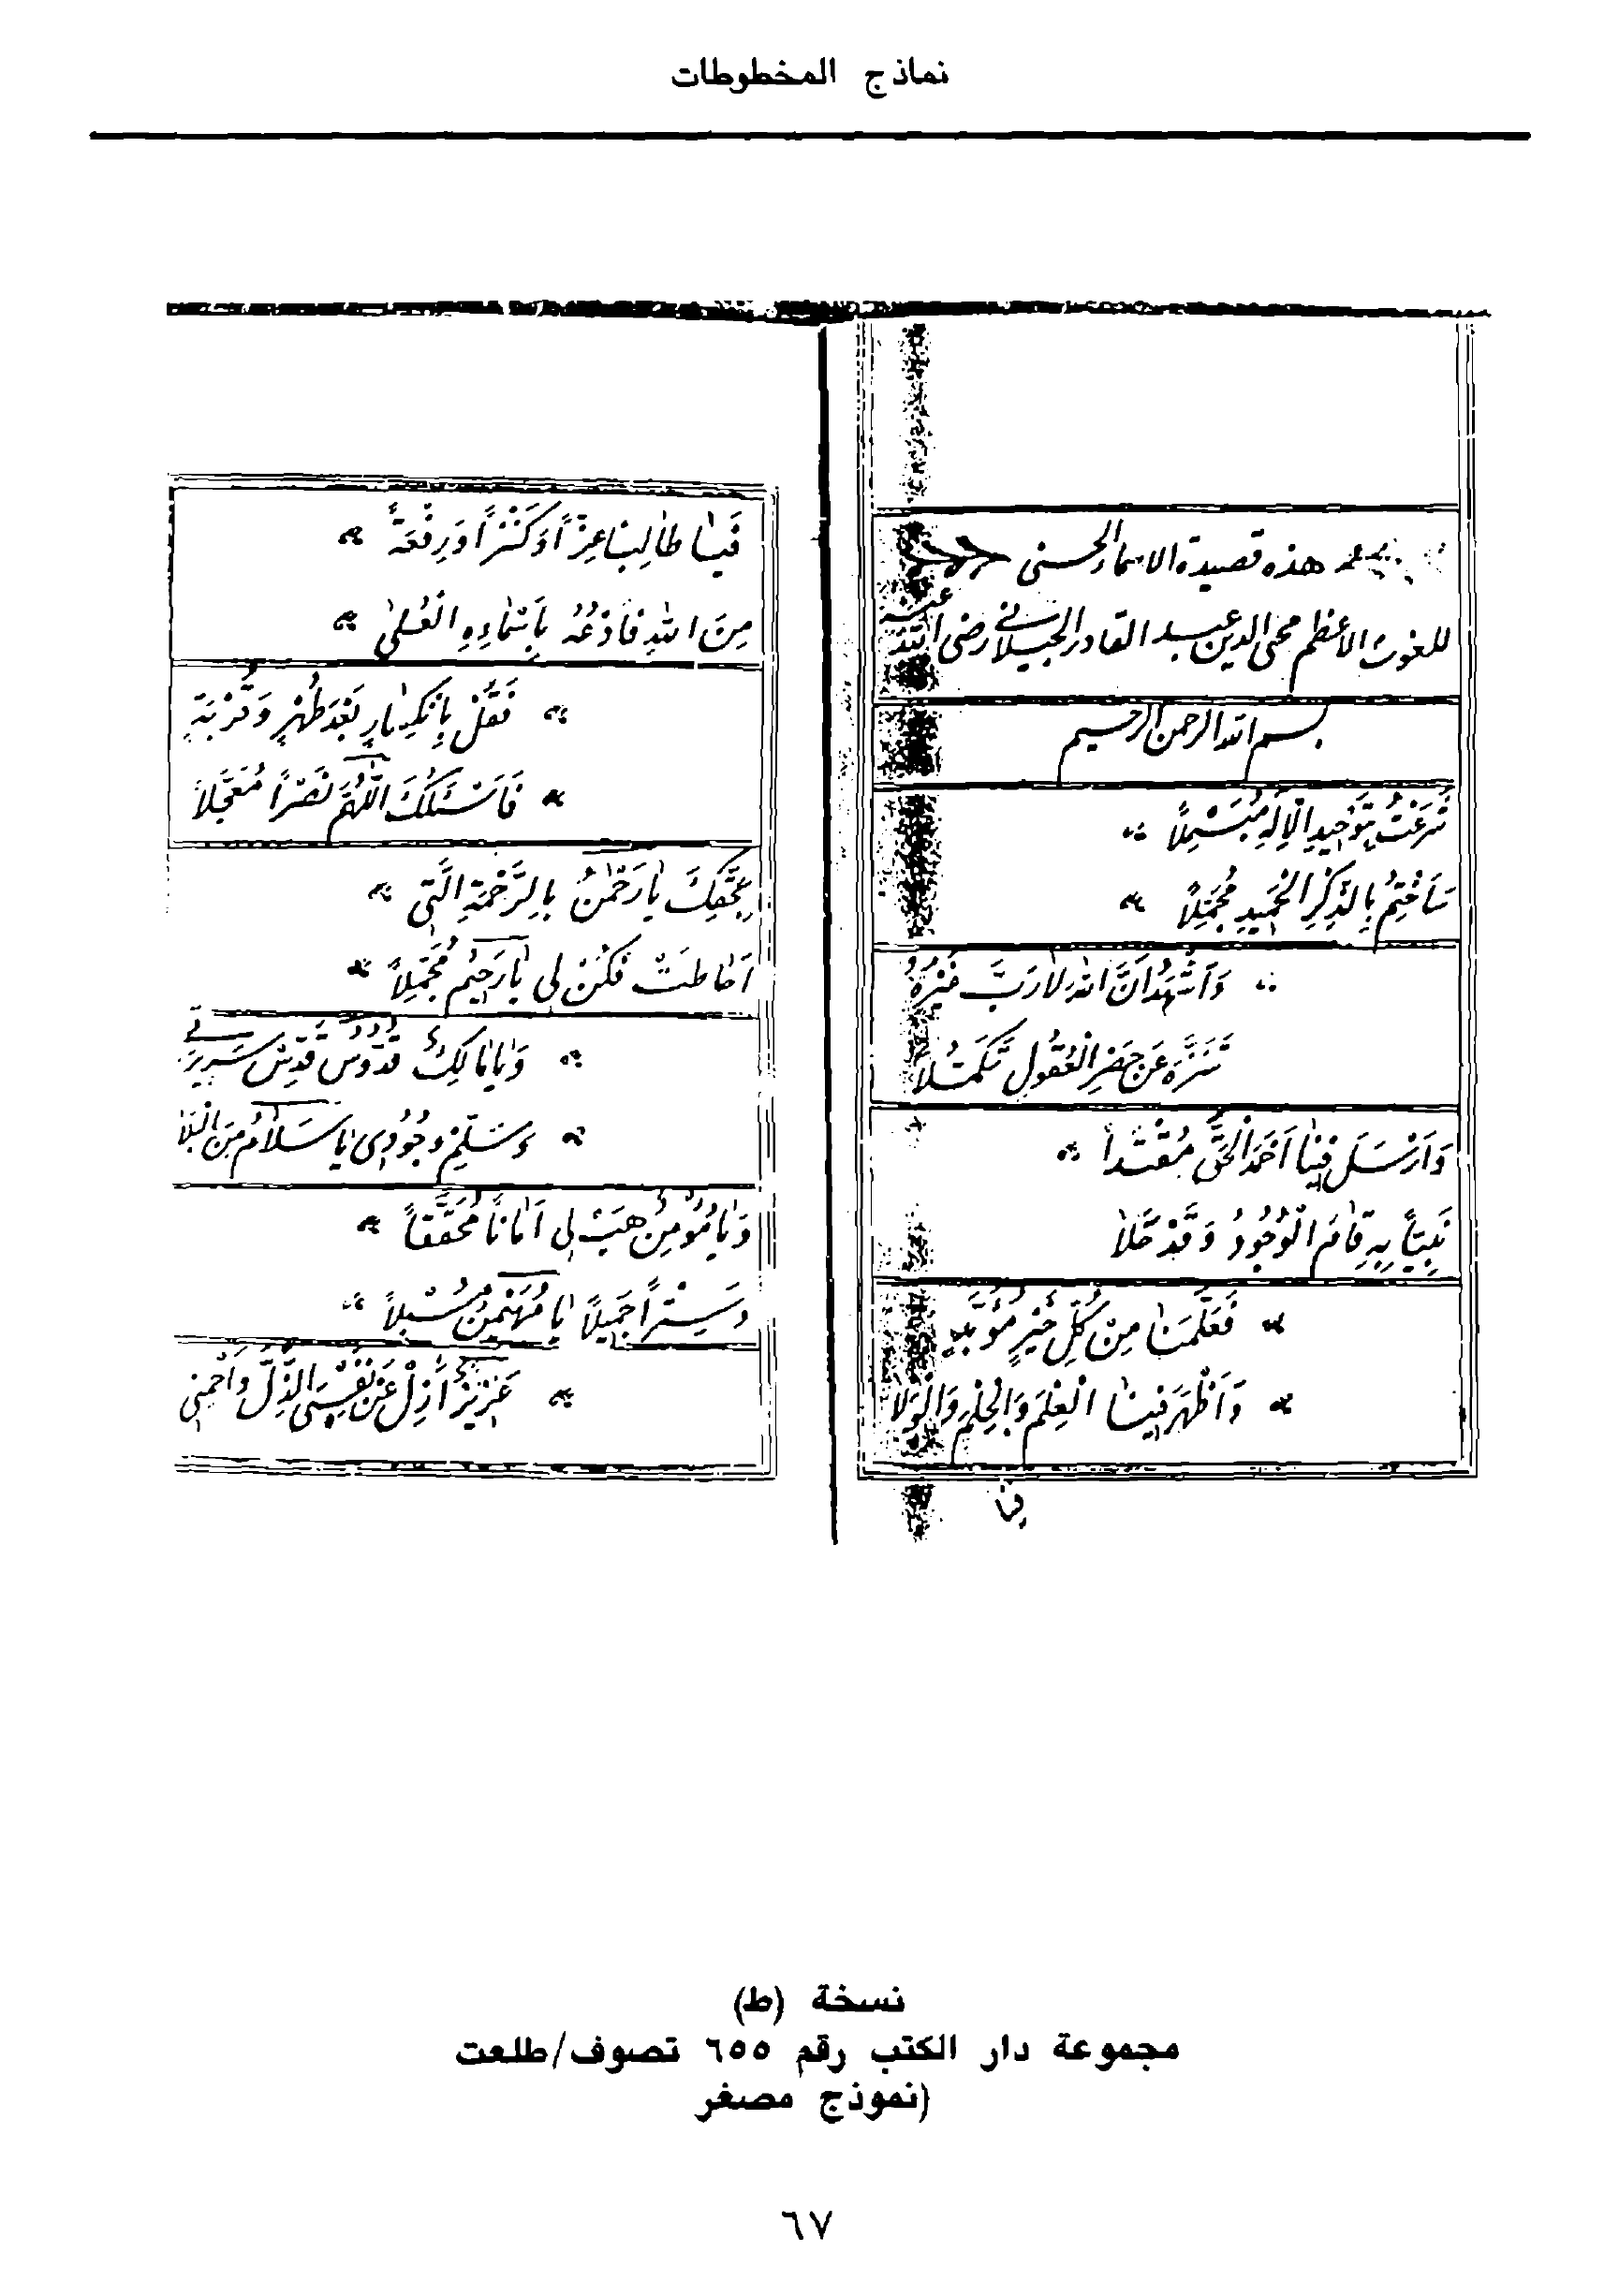 نماذج المخطوطات
هذه قصيدة الاسماء الحسنى
للغوث الاعظم محى الدين عبد القادر الجيلانى رضى الله عنه
بسم الله الرحمن الرحيم
شَرَعْتُ بِتَوْحِيدِ الْاِلٰهِ مُبَسْمِلاً
سَاَخْتِمُ بِالذِّكْرِ الْحَمِيدِ مُجَمِّلاً
وَاَشْهَدُ اَنَّ اللهَ لَا رَبَّ غَيْرُهُ
تَنَزَّهَ عَنْ حَصْرِ الْعُقُولِ تَكَمُّلَا
وَاَرْسَلَ فِينٰا اَحْمَدَ الْحَقِّ مُقْتَداً
نَبِيّاً بِهِ قٰامَ الْوُجُودُ وَقَدْ خَلَا
فَعَلَّمَنٰا مِنْ كُلِّ خَيْرٍ مُؤَبَّدٍ
وَاَظْهَرَ فِينٰا الْعِلْمَ وَالْحِلْمَ وَالْوَلَا
فيا
فَيٰا طٰالِبًا عِزّاً وَكَنْزاً وَرِفْعَةً
مِنَ اللهِ فَادْعُهُ بِاَسْمٰاءِهِ الْعُلىٰ
فَقُلْ بِانْكِسٰارٍ بَعْدَ طُهْرٍ وَقُرْبَةٍ
فَاَسْئَلُكَ اللّٰهُمَّ نَصْراً مُعَجَّلاً
بِحَقِّكَ يٰا رَحْمٰنُ بِالرَّحْمَةِ الَّتِى
اَحٰاطَتْ فَكُنْ لِى يٰا رَحِيْمُ مُجَمِّلاً
وَيٰا مٰالِكُ قُدُّوسُ قَدِّسْ سَرِيرَتِى
وَسَلِّمْ وُجُودِى يٰا سَلَامُ مِنَ الْبَلَا
وَيٰا مُؤْمِنُ هَبْ لِى اَمٰانًا مُحَقَّقاً
وَسِتْراً جَمِيلاً يٰا مُهَيْمِنُ مُسْبِلاً
عَزِيزُ اَزِلْ عَنْ نَفْسِىَ الذُّلَّ وَاحْمِنِى
نسخة (ط)
مجموعة دار الكتب رقم ٦٥٥ تصوف/طلعت
(نموذج مصغر
٦٧